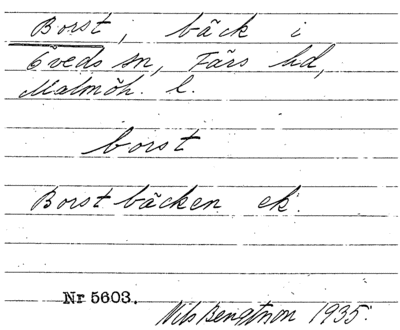 Borst, bäck i
Öveds sn, Färs hd,
Malmöh. l.
borst
Borstbäcken ek.
Nr 5603.
Nils Bengtson 1935.